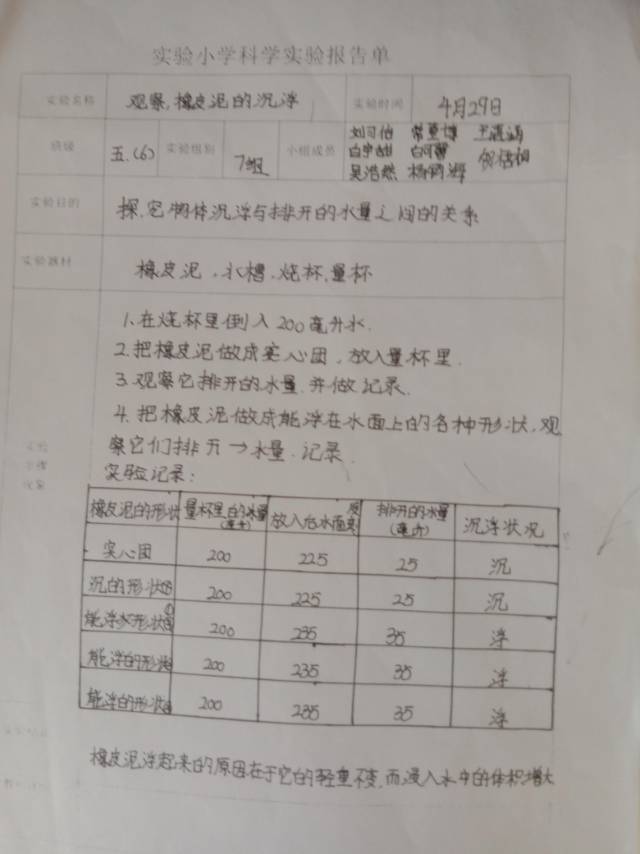 实验小学科学实验报告单
实验名称 观察橡皮泥的沉浮 实验时间 4月29日
班级 五.(6) 实验组别 7组 小组成员
实验目的 探究物体沉浮与排开的水量之间的关系
实验器材 橡皮泥,水槽,烧杯,量杯
1.在烧杯里倒入200毫升水.
2.把橡皮泥做成实心团,放入量杯里.
3.观察它排开的水量.并做记录.
4.把橡皮泥做成能浮在水面上的各种形状,观
察它们排开 水量.记录.
实验记录:
橡皮泥的形状 量杯里的水量(毫升) 放入后水面 排开的水量(毫升) 沉浮状况
实心团 200 225 25 沉
沉的形状 200 225 25 沉
能浮 形状 200 235 35 浮
能浮的形状 200 235 35 浮
能浮的形状 200 235 35 浮
橡皮泥浮起来的原因在于它的轻重不变,而浸入水中的体积增大